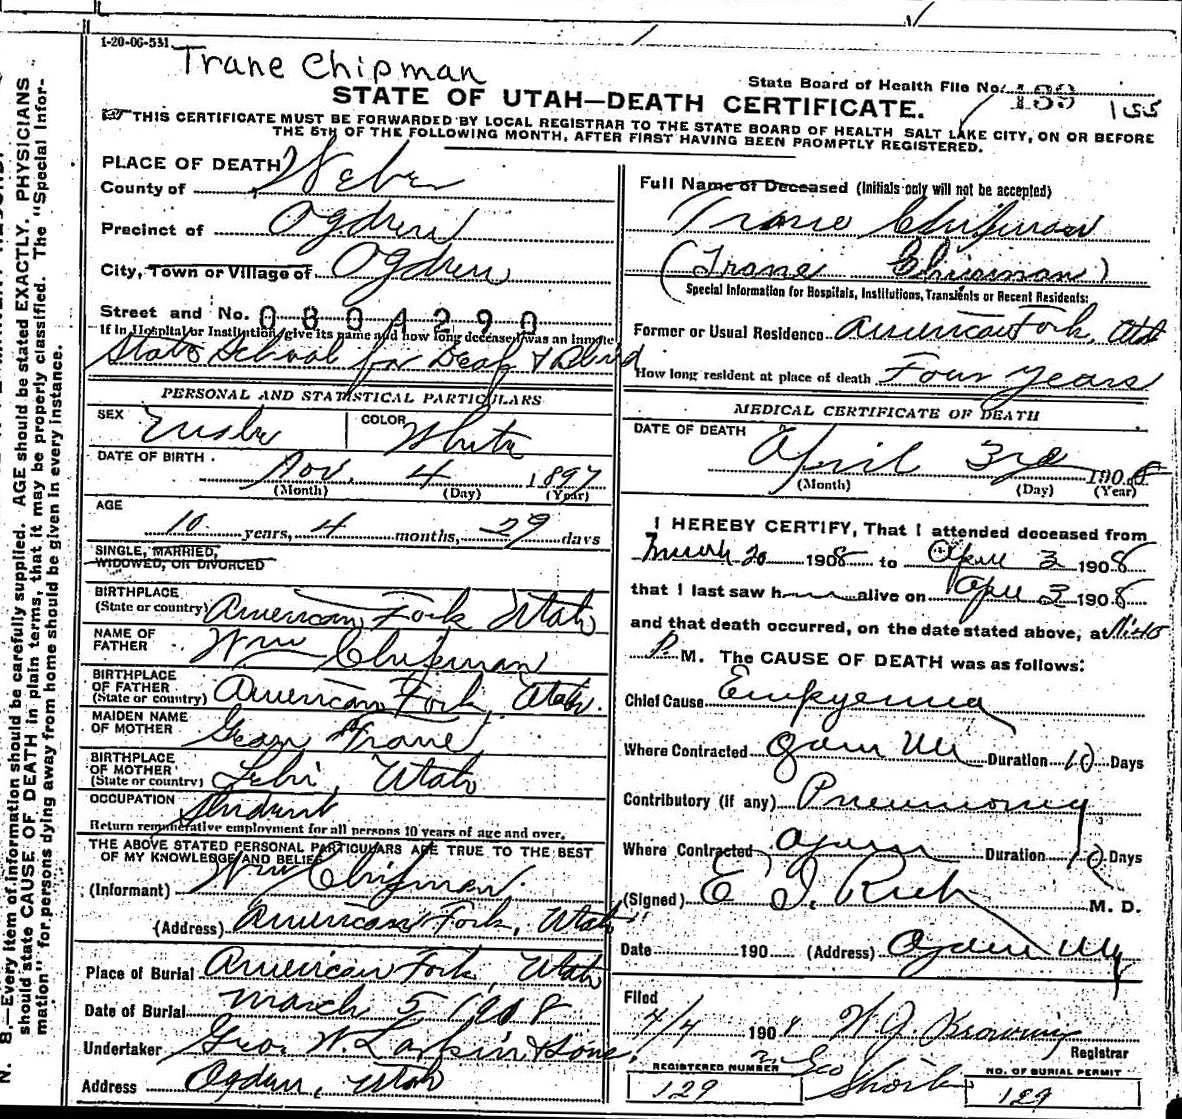 1-20-06-531
Trane Chipman
State Board of Health File No. 133 155
STATE OF UTAH—DEATH CERTIFICATE.
THIS CERTIFICATE MUST BE FORWARDED BY LOCAL REGISTRAR TO THE STATE BOARD OF HEALTH SALT LAKE CITY, ON OR BEFORE
THE 5TH OF THE FOLLOWING MONTH, AFTER FIRST HAVING BEEN PROMPTLY REGISTERED.
PLACE OF DEATH
County of Weber
Precinct of Ogden
City, Town or Village of Ogden
Street and No. 0804290
If in Hospital or Institution, give its name and how long deceased was an inmate
State School for Deaf & Blind
PERSONAL AND STATISTICAL PARTICULARS
SEX COLOR White
DATE OF BIRTH
Nov. 4 1897
(Month) (Day) (Year)
AGE
10 years, 4 months, 29 days
SINGLE, MARRIED,
WIDOWED, OR DIVORCED
BIRTHPLACE
(State or country) American Fork Utah
NAME OF
FATHER Wm Chipman
BIRTHPLACE
OF FATHER
(State or country) American Fork, Utah.
MAIDEN NAME
OF MOTHER Trane
BIRTHPLACE
OF MOTHER
(State or country) Lehi Utah
OCCUPATION Student
Return remunerative employment for all persons 10 years of age and over.
THE ABOVE STATED PERSONAL PARTICULARS ARE TRUE TO THE BEST
OF MY KNOWLEDGE AND BELIEF
(Informant) Wm Chipman.
(Address) American Fork, Utah
Place of Burial American Fork, Utah
Date of Burial March 5 1908
Undertaker Geo. W. Larkin & Sons.
Address Ogden, Utah
Full Name of Deceased (Initials only will not be accepted)
Trane Chipman
(Trane Chipman)
Special Information for Hospitals, Institutions, Transients or Recent Residents:
Former or Usual Residence American Fork, Utah
How long resident at place of death Four years
MEDICAL CERTIFICATE OF DEATH
DATE OF DEATH
April 3rd 1908
(Month) (Day) (Year)
I HEREBY CERTIFY, That I attended deceased from
March 20 1908 to April 3 1908
that I last saw h alive on April 3 1908
and that death occurred, on the date stated above, at 11:40
P. M. The CAUSE OF DEATH was as follows:
Chief Cause Empyema
Where Contracted Ogden Ut Duration 10 Days
Contributory (if any) Pneumonia
Where Contracted Ogden Duration 10 Days
(Signed) E. I. Rich M. D.
Date 190 (Address) Ogden Utah
Filed
4/4 1908 W. J. Browning
Registrar
REGISTERED NUMBER
129
Geo Shorten
NO. OF BURIAL PERMIT
129
N. B.—Every item of information should be carefully supplied. AGE should be stated EXACTLY. PHYSICIANS
should state CAUSE OF DEATH in plain terms, that it may be properly classified. The "Special Infor-
mation" for persons dying away from home should be given in every instance.